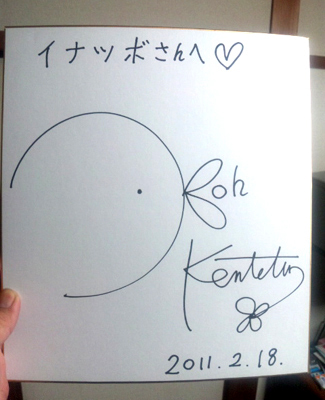 イナツボさんへ♡
Roh
Kentetsu
2011.2.18.